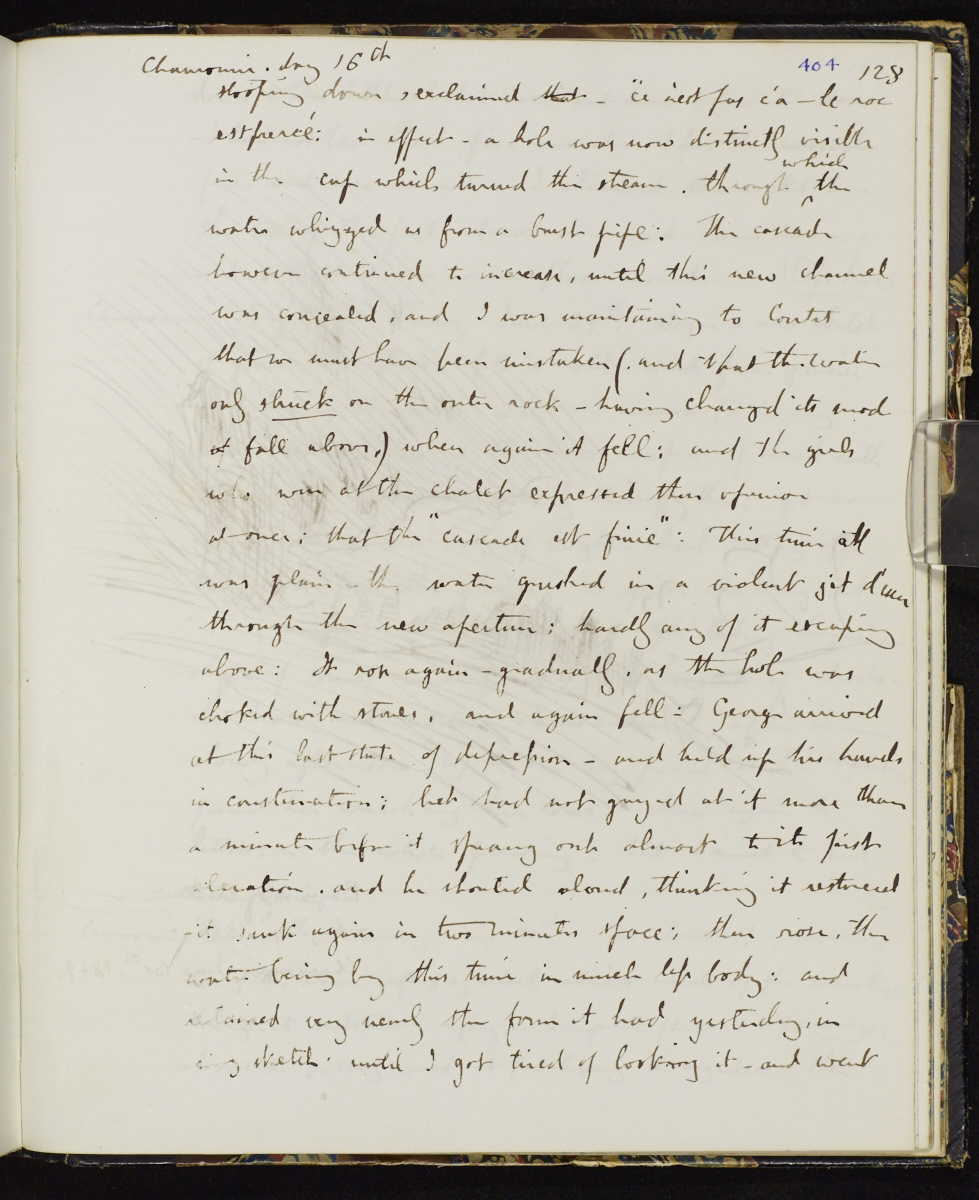 Chamonix. day 16th 404 128
stooping down & exclaimed that - "ce n'est pas ça - le roc
est percé: in effect - a hole was now distinctly visible
in the cup which turned the stream. through which the
water whizzed as from a burst pipe: The cascade
however continued to increase, until this new channel
was concealed, and I was maintaining to Coutet
that we must have been mistaken (. and that the water
only struck on the outer rock - having changed its mode
of fall above,) when again it fell; and the girls
who were at the chalet expressed their opinion
at once; that the "cascade est finie": This time all
was plain - the water gushed in a violent jet d'eau
through the new aperture; hardly any of it escaping
above: It rose again - gradually, as the hole was
choked with stones, and again fell: George arrived
at this last state of depression - and held up his hands
in consternation; but had not gazed at it more than
a minute before it sprang out almost to its first
elevation. and he shouted aloud, thinking it restored
- it sank again in two minutes space; then rose, the
water being by this time in much less body: and
retained very nearly the form it had yesterday, in
my sketch. until I got tired of looking it - and went